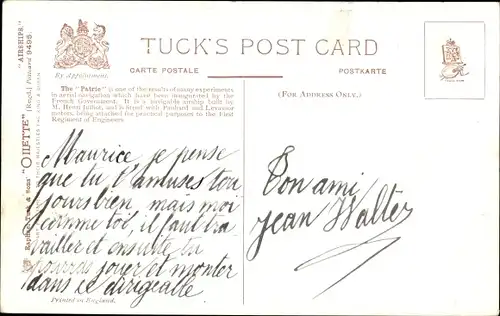 TUCK'S POST CARD
By Appointment.
CARTE POSTALE
POSTKARTE
The "Patrie" is one of the results of many experiments
in aerial navigation which have been inaugurated by the
French Government. It is a navigable airship built by
M. Henri Julliot, and is fitted with Panhard and Levassor
motors, being attached for practical purposes to the First
Regiment of Engineers.
(FOR ADDRESS ONLY.)
"AIRSHIPS."
(Regd.) Postcard 9495.
Raphael Tuck & Sons' "OILETTE"
Maurice, je pense
que tu t'amuses tou
jours bien, mais moi
comme toi, il faut tra
vailler et ensuite tu
pourras jouer et monter
dans ce dirigeable.
Ton ami
Jean Walter
Printed in England.